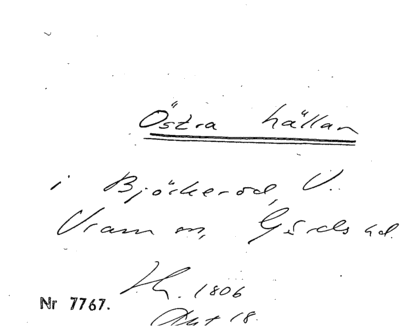 Östra hällan
i Björkeröd, V.
Vram sn, Gärds hd.
1806
18.
Nr 7767.